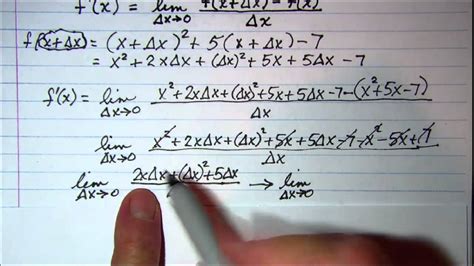 f'(x) = lim Δx→0 f(x+Δx) - f(x) / Δx
f(x+Δx) = (x+Δx)² + 5(x+Δx) - 7
= x² + 2xΔx + (Δx)² + 5x + 5Δx - 7
f'(x) = lim Δx→0 x² + 2xΔx + (Δx)² + 5x + 5Δx - 7 - (x² + 5x - 7) / Δx
lim Δx→0 x² + 2xΔx + (Δx)² + 5x + 5Δx - 7 - x² - 5x + 7 / Δx
lim Δx→0 2xΔx + (Δx)² + 5Δx → lim Δx→0